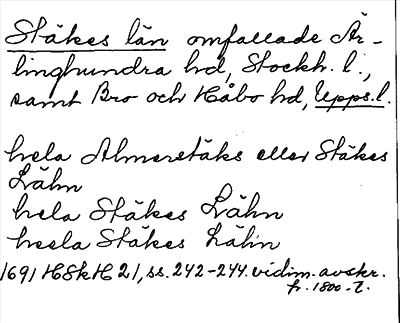 Stäkes län omfattade Är-
linghundra hd, Stockh. l.,
samt Bro och Håbo hd, Upps.l.
hela Almerstäks eller Stäkes
Lähn
hela Stäkes Lähn
heela Stäkes Lähn
1691 HSkH 21, ss. 242-244. vidim. avskr.
fr. 1800-t.